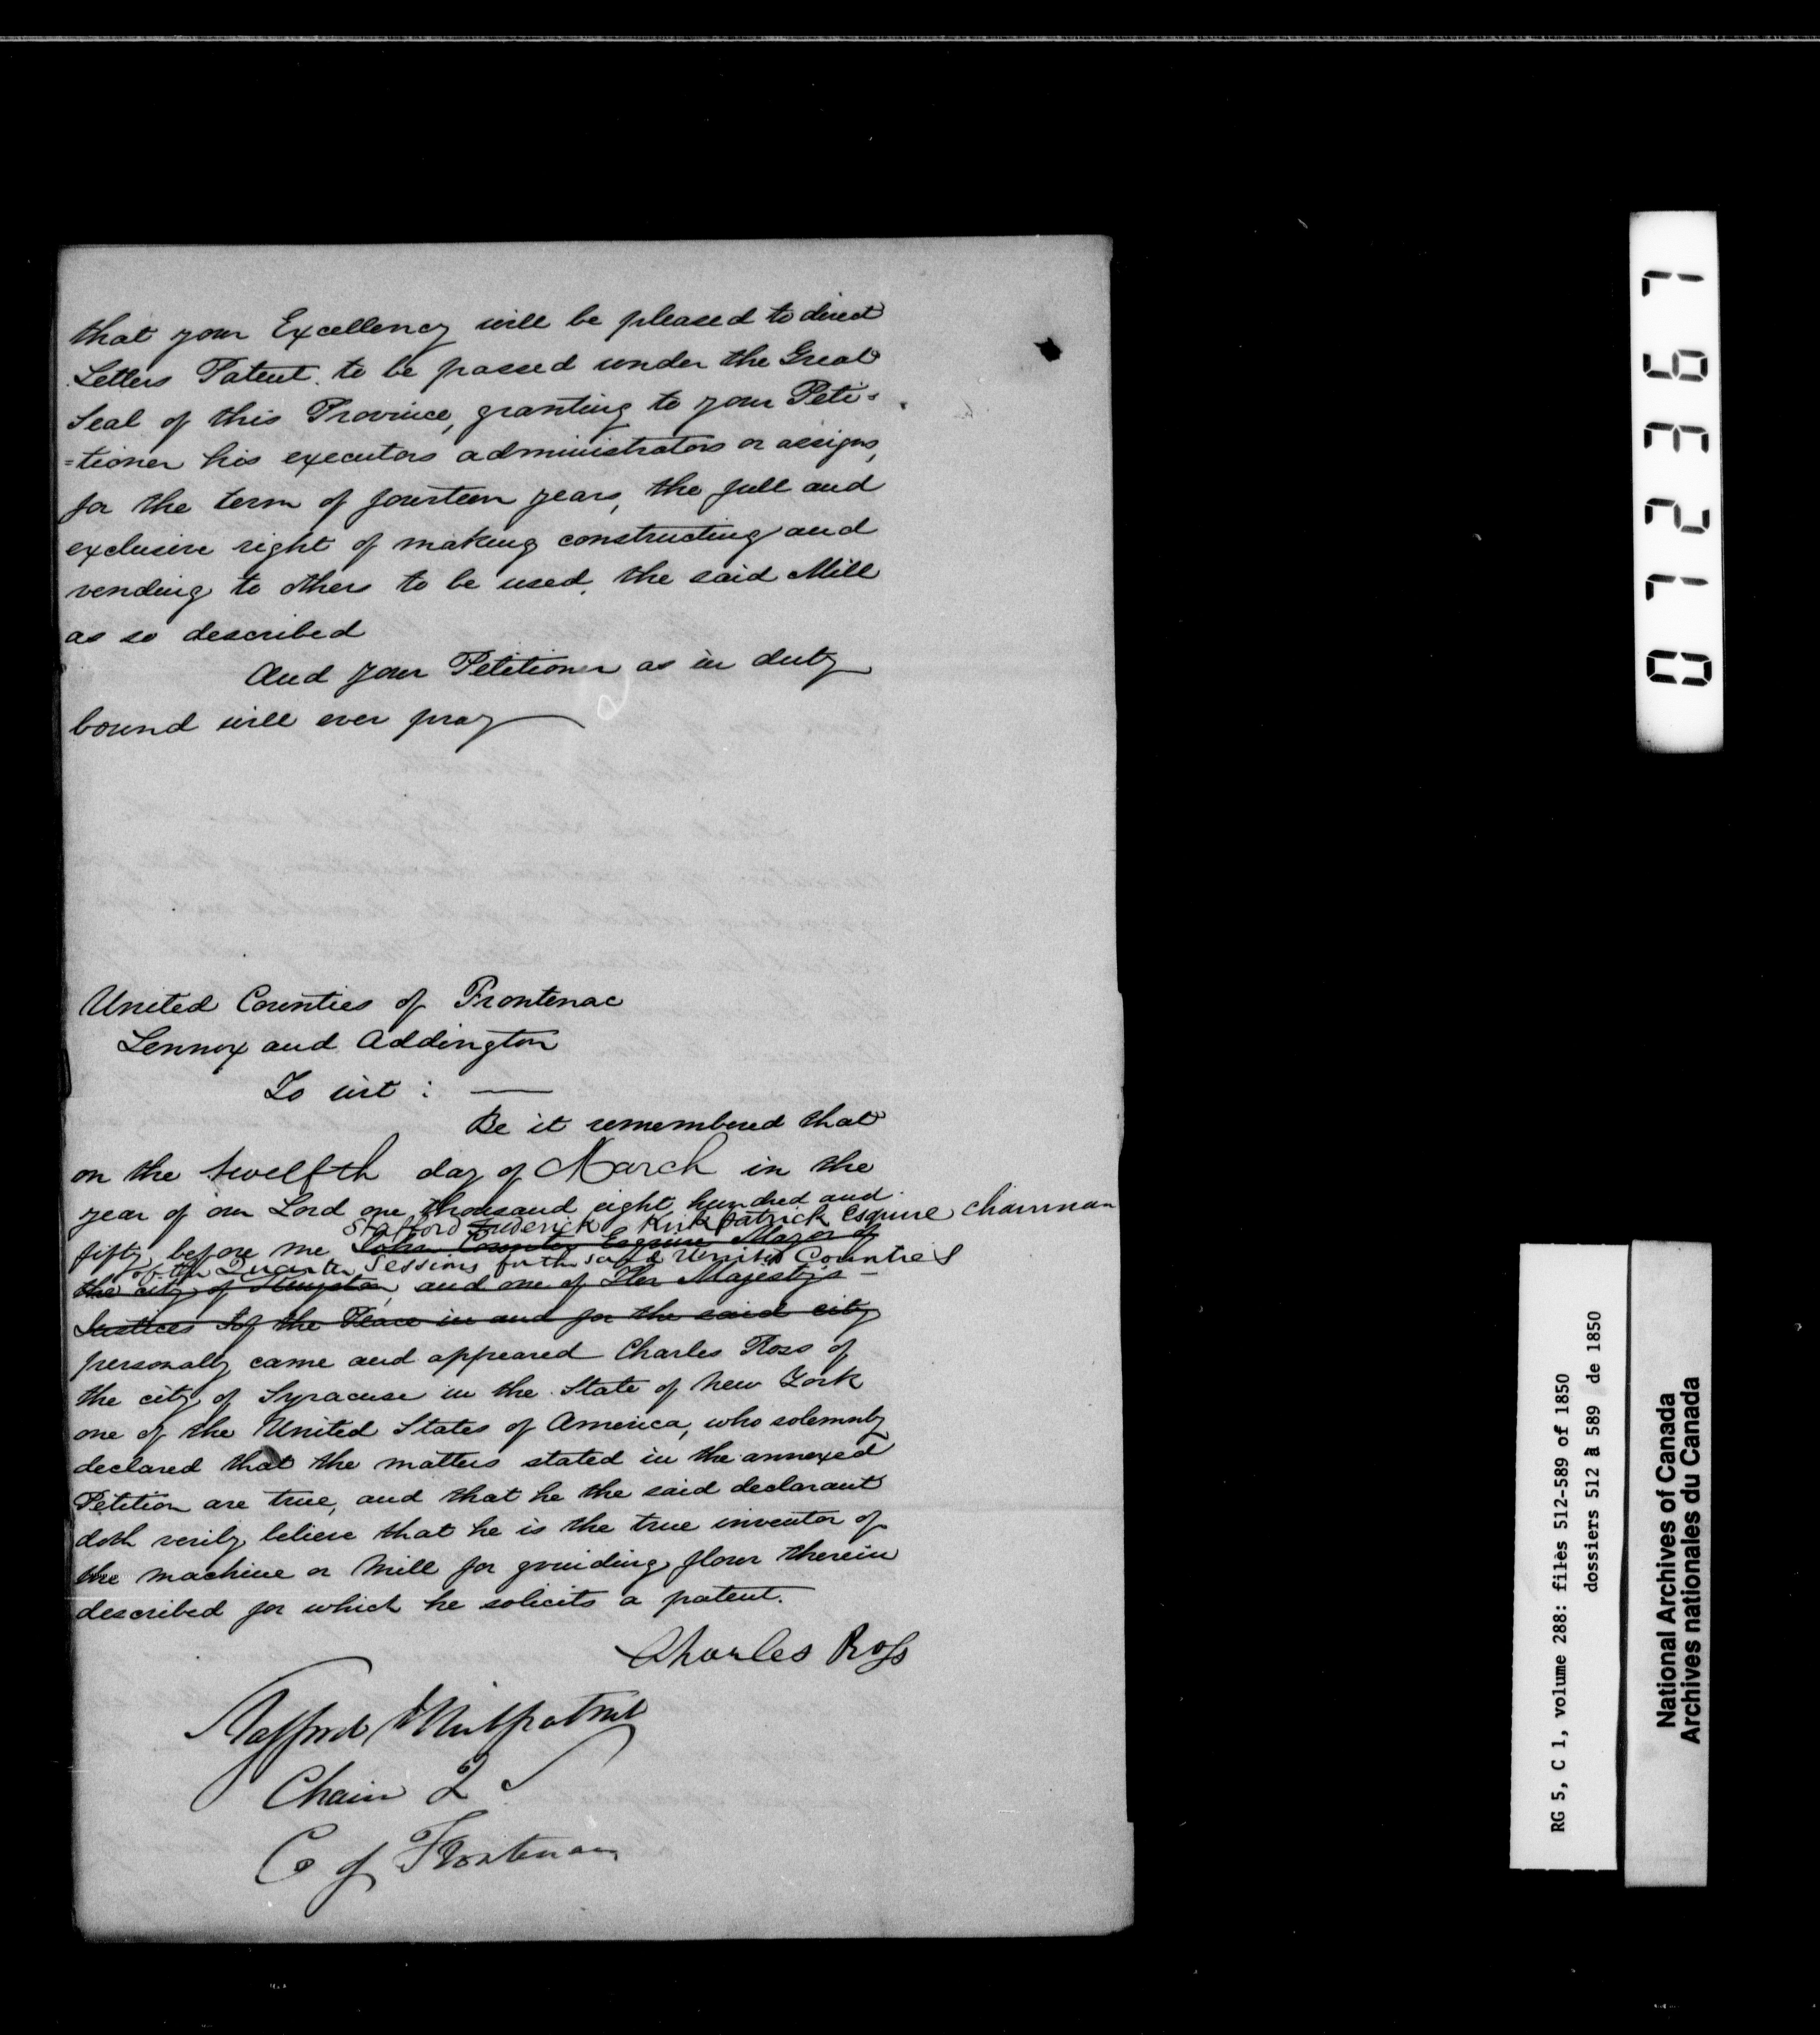 that your Excellency will be pleased to direct
Letters Patent to be passed under the Great
Seal of this Province, granting to your Peti=
=tioner his executors administrators or assigns,
for the term of fourteen years, the full and
exclusive right of making constructing and
vending to others to be used, the said Mill
as so described
And your Petitioner as in duty
bound will ever pray
United Counties of Frontenac
Lennox and Addington
To wit :
Be it remembered that
on the twelfth day of March in the
year of our Lord one thousand eight hundred and
Stafford Frederick Kirkpatrick Esquire Chairman
fifty before me John Counter Esquire Mayor of
of the Quarter Sessions for the said United Counties
the city of Kingston, and one of Her Majesty's
Justices of the Peace in and for the said city
personally came and appeared Charles Ross of
the city of Syracuse in the State of New York
one of the United States of America, who solemnly
declared that the matters stated in the annexed
Petition are true, and that he the said declarant
doth verily believe that he is the true inventor of
the machine or Mill for grinding flour therein
described for which he solicits a patent.
Charles Ross
Stafford Kirkpatrick
Chair Q S
Co of Frontenac
072367
RG 5, C 1, volume 288: files 512-589 of 1850
dossiers 512 à 589 de 1850
National Archives of Canada
Archives nationales du Canada